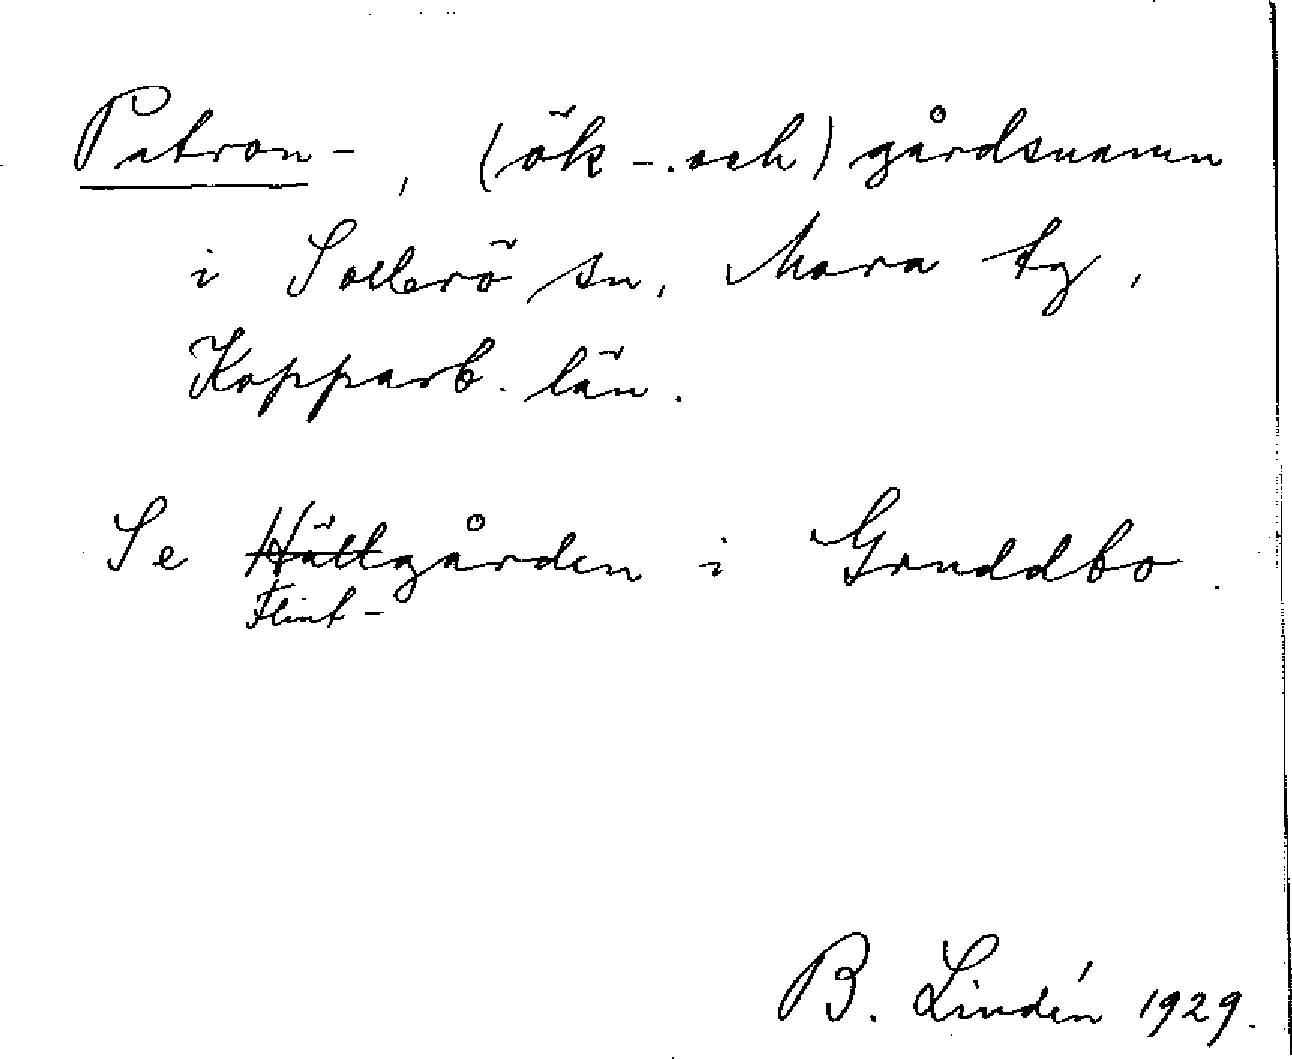 Patron-, (ök- och) gårdsnamn
i Sollerö sn, Mora tg,
Kopparb. län.
Se Hältgården i Gruddbo.
Flint-
B. Lindén 1929.